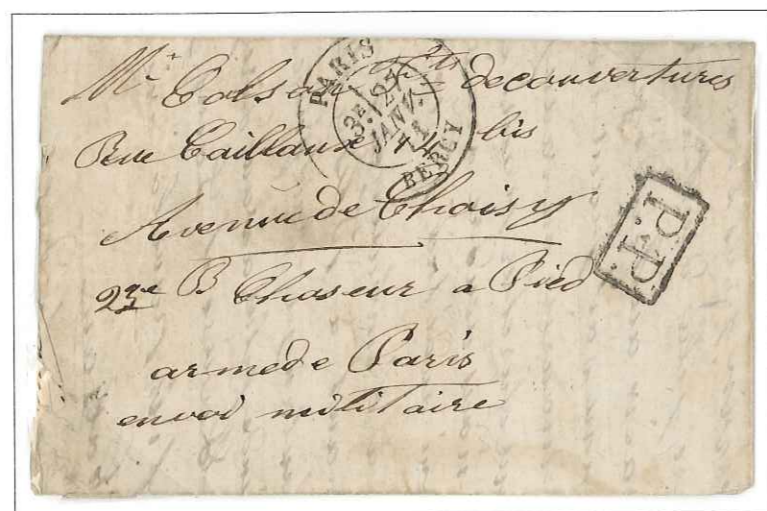 Mr Colson fts de couvertures
Rue Caillaux 4 bis
Avenue de Choisy
23e B Chaseur a Pied
armede Paris
envoi militaire
PARIS
3e 27
JANV.
71
BERCY
P.P.